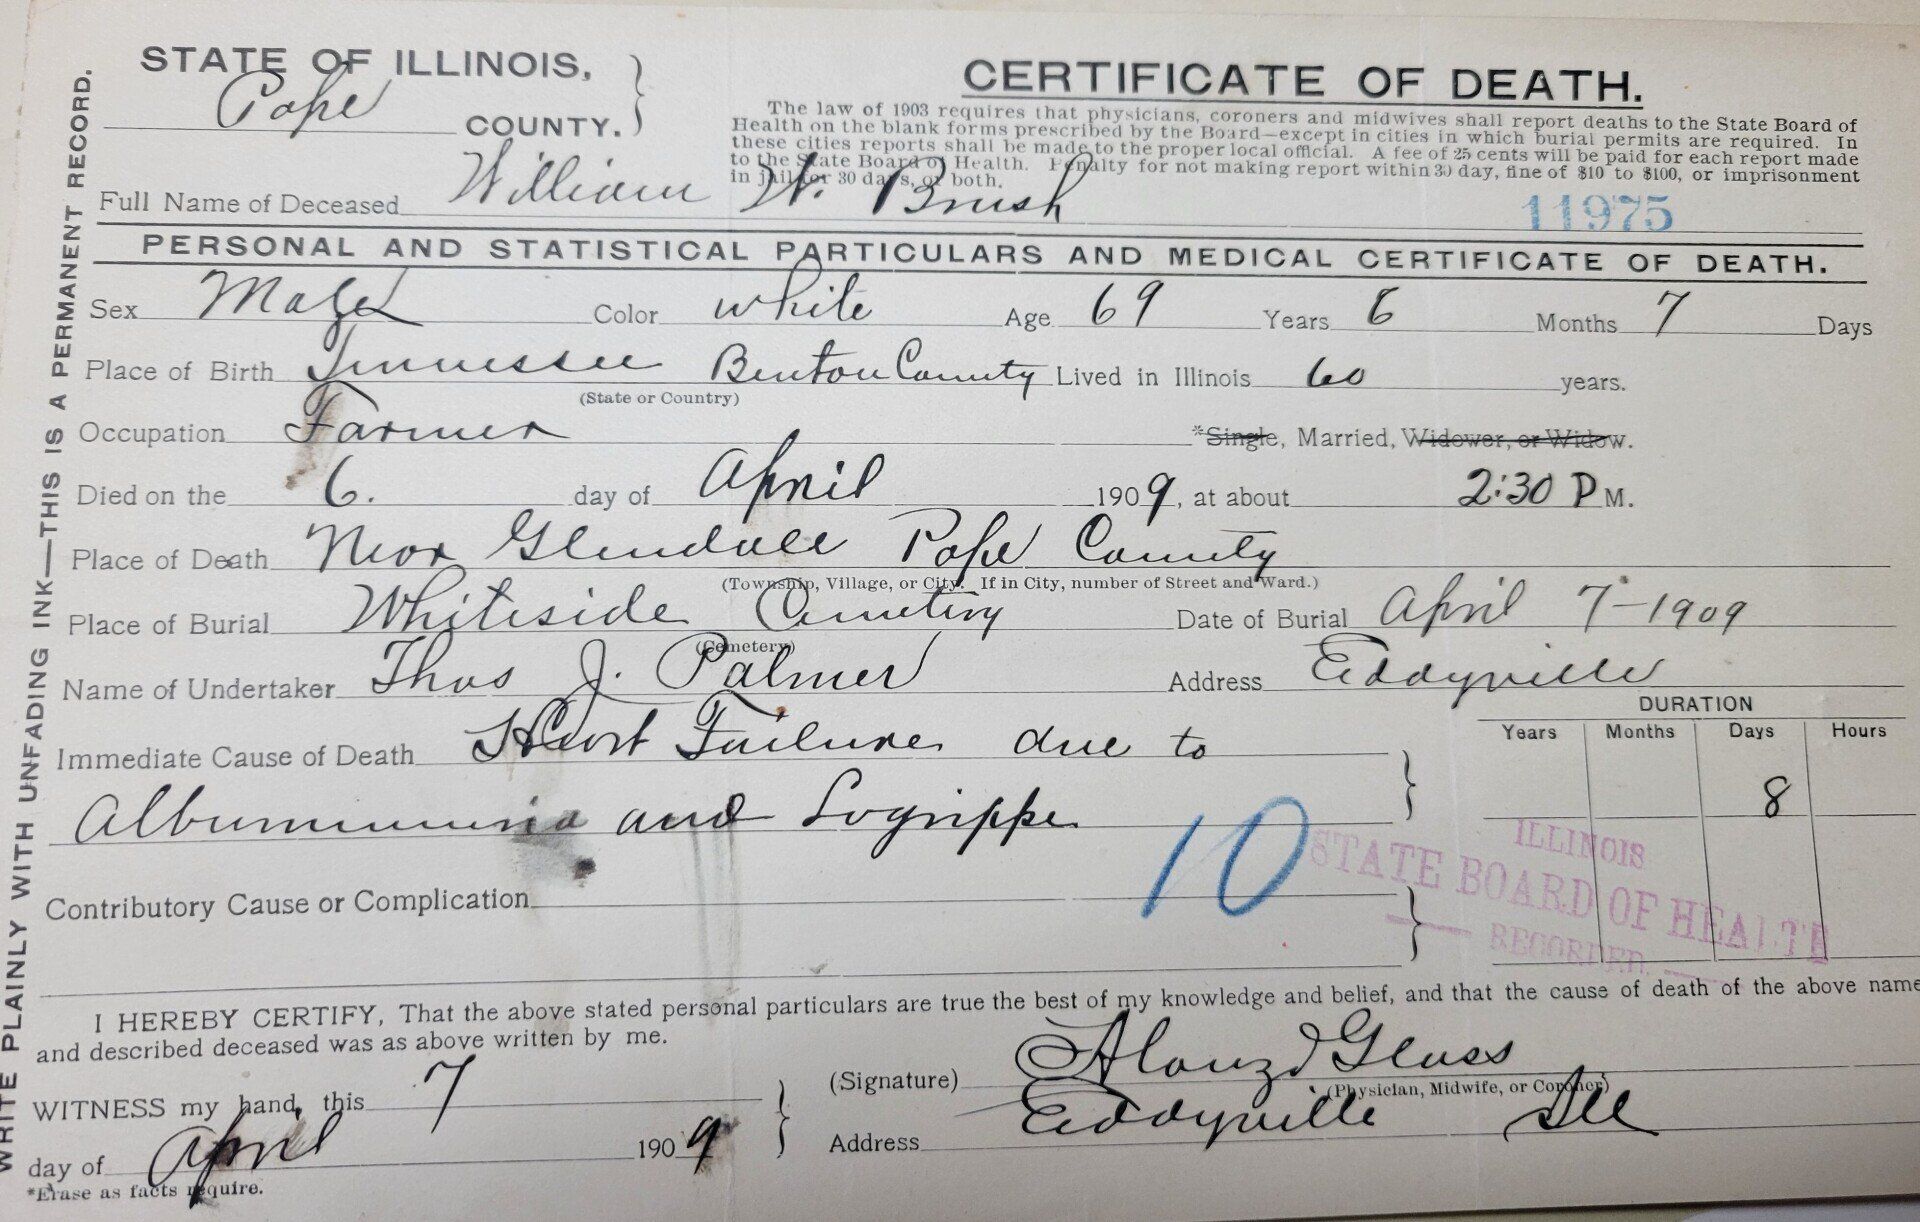 STATE OF ILLINOIS,
Pope COUNTY.
CERTIFICATE OF DEATH.
The law of 1903 requires that physicians, coroners and midwives shall report deaths to the State Board of
Health on the blank forms prescribed by the Board—except in cities in which burial permits are required. In
these cities reports shall be made to the proper local official. A fee of 25 cents will be paid for each report made
to the State Board of Health. Penalty for not making report within 30 day, fine of $10 to $100, or imprisonment
in jail for 30 days, or both.
Full Name of Deceased William W. Brush
11975
PERSONAL AND STATISTICAL PARTICULARS AND MEDICAL CERTIFICATE OF DEATH.
Sex Male Color white Age 69 Years 8 Months 7 Days
Place of Birth Tennessee Benton County Lived in Illinois 60 years.
(State or Country)
Occupation Farmer *Single, Married, Widower, or Widow.
Died on the 6. day of April 1909, at about 2:30 P M.
Place of Death Near Glendale Pope County
(Township, Village, or City. If in City, number of Street and Ward.)
Place of Burial Whiteside Cemetery Date of Burial April 7-1909
(Cemetery)
Name of Undertaker Thos J. Palmer Address Eddyville
DURATION
Years Months Days Hours
Immediate Cause of Death Heart Failure due to
Albuminuria and Lagrippe 8
10
Contributory Cause or Complication
ILLINOIS
STATE BOARD OF HEALTH
RECORDED.
I HEREBY CERTIFY, That the above stated personal particulars are true the best of my knowledge and belief, and that the cause of death of the above name
and described deceased was as above written by me.
WITNESS my hand, this 7
(Signature) Alonzo Glass
(Physician, Midwife, or Coroner)
day of April 1909
Address Eddyville Ill
*Erase as facts require.
WRITE PLAINLY WITH UNFADING INK—THIS IS A PERMANENT RECORD.